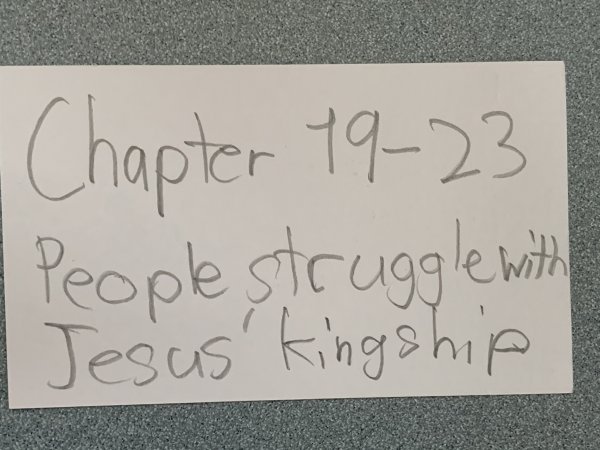 Chapter 19-23
People struggle with
Jesus' kingship